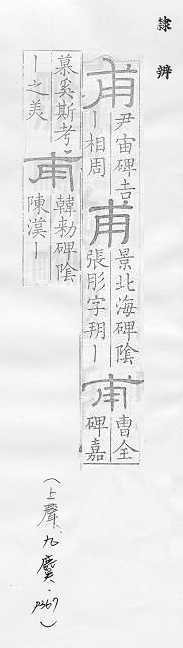 隸辨
甫 尹宙碑吉
｜相周
甫 景北海碑陰
張彤字朔｜
甫 曹全
碑嘉
慕奚斯考
｜之美
甫 韓勑碑陰
陳漢｜
(上聲.九麌.p367)